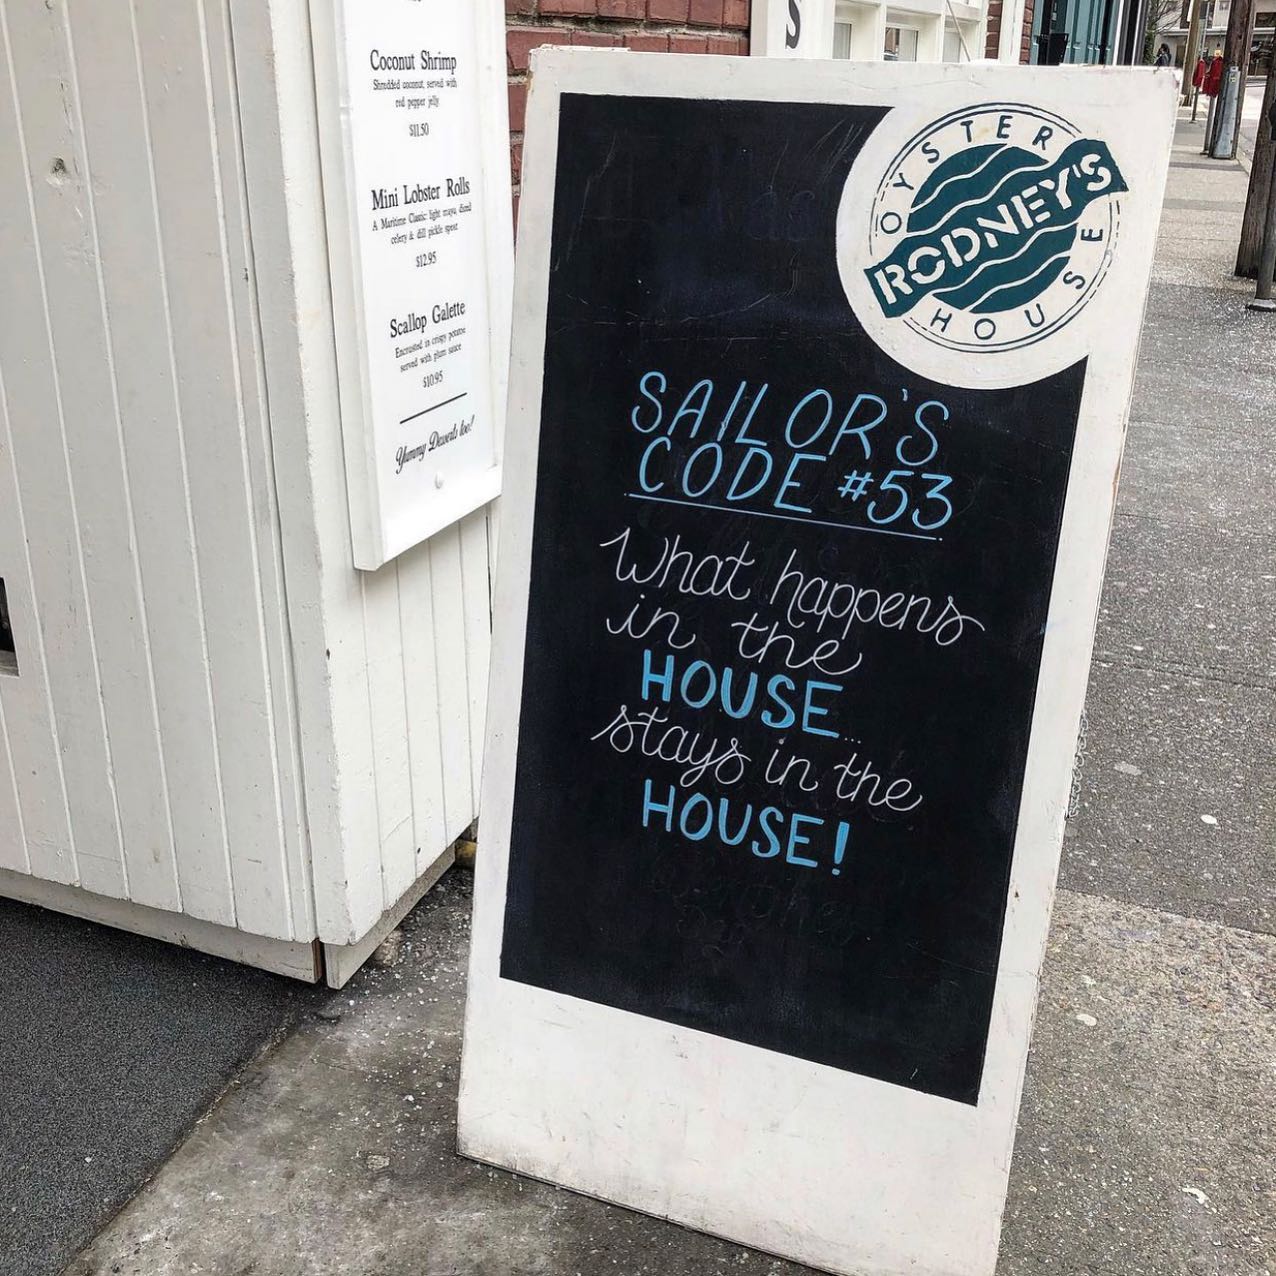 Coconut Shrimp
Shredded coconut, served with
red pepper jelly
$11.50
Mini Lobster Rolls
A Maritime Classic: light mayo, diced
celery & dill pickle spear
$12.95
Scallop Galette
Encrusted in crispy potatoe
served with plum sauce
$10.95
Yummy Desserts too!
S
OYSTER
RODNEY'S
HOUSE
SAILOR'S
CODE #53
What happens
in the
HOUSE...
stays in the
HOUSE!